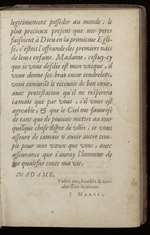 legitimement posseder au monde: le
plus precieux present que nos peres
faisoient à Dieu en la primitiue Egli-
se, c'estoit l'offrande des premiers nais
de leurs enfans. Madame, cest-cy
que je vous desdie est mon vnique, &
vous donne ses bras encor tendrelets,
vous conuiant le receuoir de bon cœur,
auec protestation qu'il ne respirera
iamais que par vous, s'il vous est
agreable, & que le Ciel me fauorise
de tant que de pouuoir mettre au iour
quelque chose digne de vostre, ie vous
asseure de iamais n'auoir autre tem-
ple pour mes vœux que vous, auec
asseurance que i'auray l'honneur de
me qualifier toute ma vie,
MADAME,
Vostre tres-humble & tres-
obeissant seruiteur
I. M